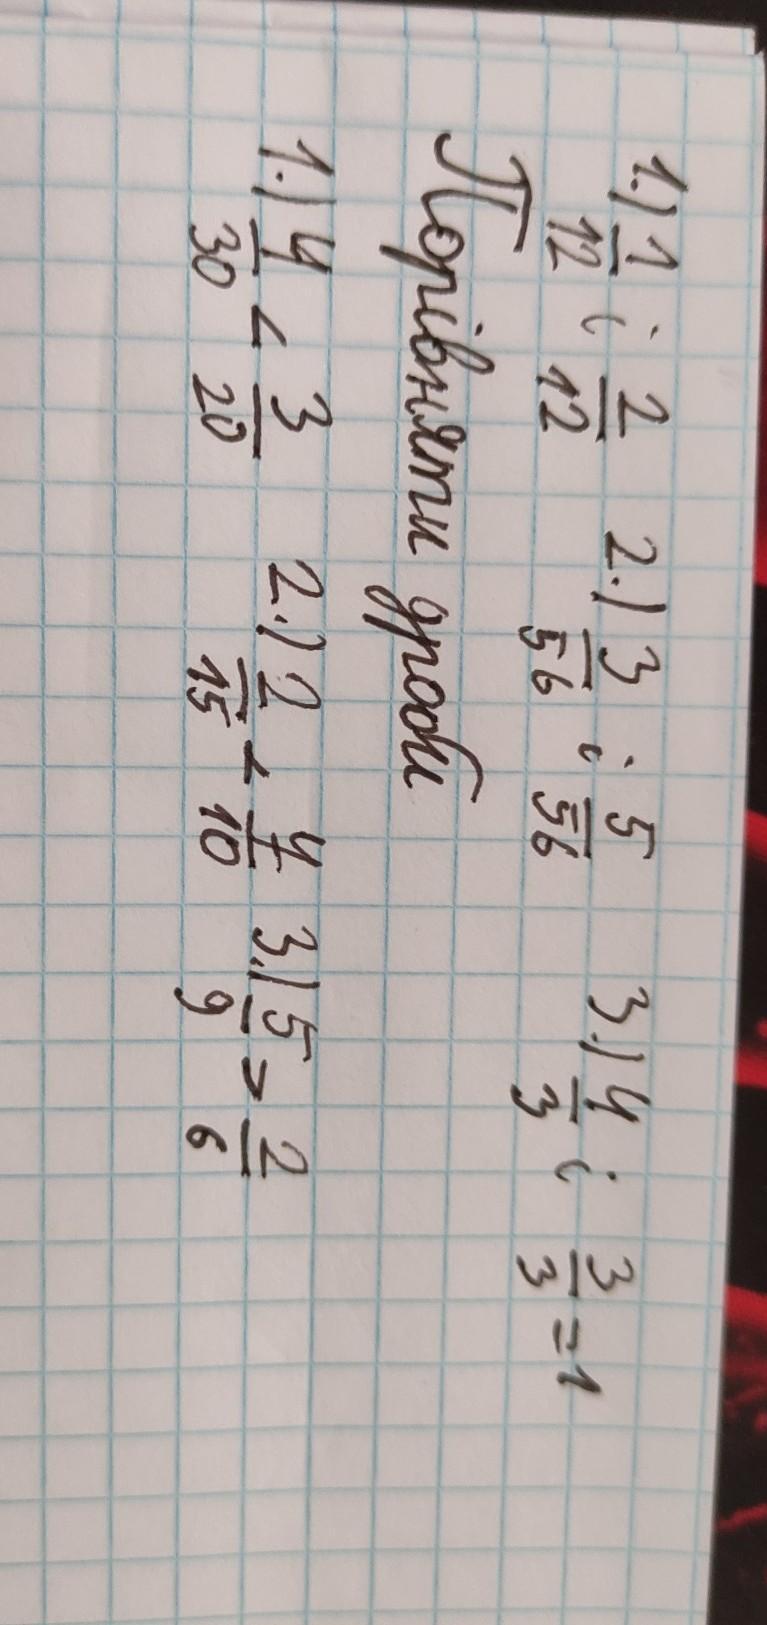 1.) 1/12 і 2/12 2.) 3/56 і 5/56 3.) 4/3 і 3/3 = 1
Порівняти дроби
1.) 4/30 < 3/20 2.) 2/15 < 4/10 3.) 5/9 > 2/6